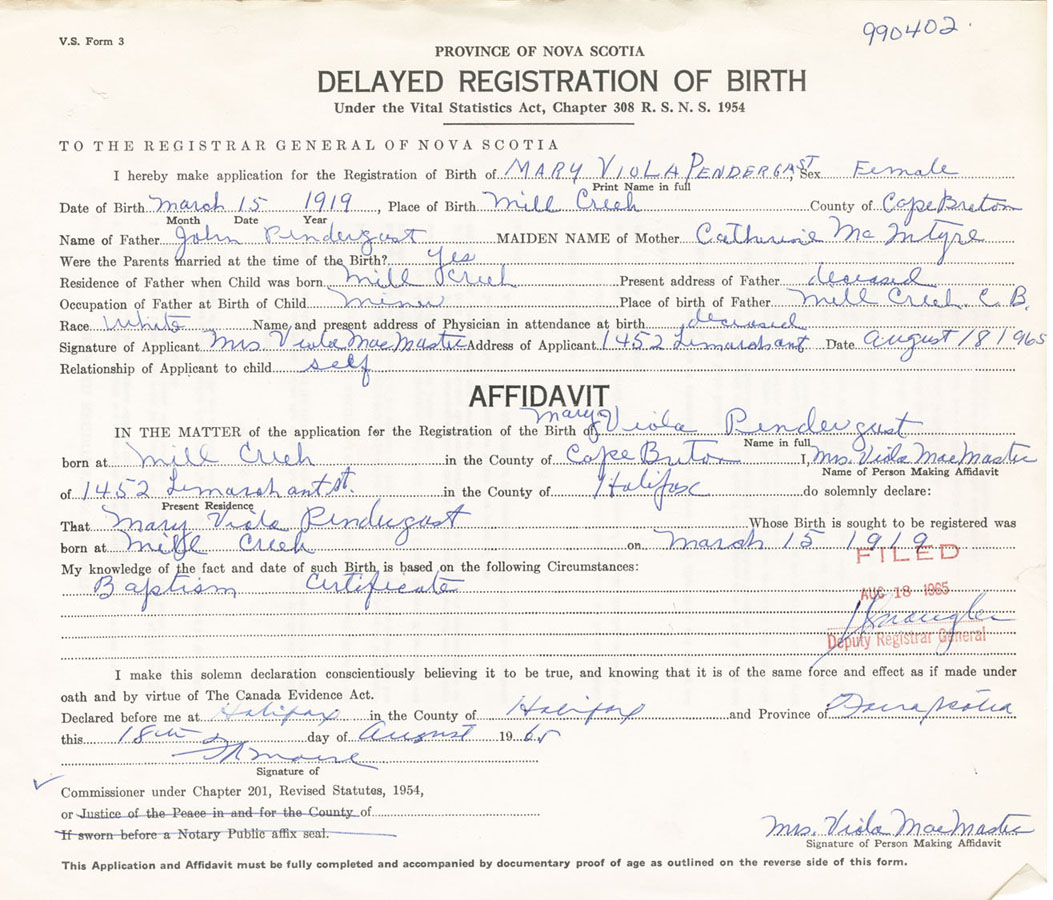 990402.
V.S. Form 3
PROVINCE OF NOVA SCOTIA
DELAYED REGISTRATION OF BIRTH
Under the Vital Statistics Act, Chapter 308 R. S. N. S. 1954
TO THE REGISTRAR GENERAL OF NOVA SCOTIA
I hereby make application for the Registration of Birth of MARY VIOLA PENDERGAST, Sex Female
Print Name in full
Date of Birth March 15 1919, Place of Birth Mill Creek County of Cape Breton
Month Date Year
Name of Father John Pendergast MAIDEN NAME of Mother Catherine McIntyre
Were the Parents married at the time of the Birth? Yes
Residence of Father when Child was born Mill Creek Present address of Father deceased
Occupation of Father at Birth of Child Miner Place of birth of Father Mill Creek C. B.
Race White Name and present address of Physician in attendance at birth deceased
Signature of Applicant Mrs Viola MacMaster Address of Applicant 1452 Lemarchant Date August 18 1965
Relationship of Applicant to child self
AFFIDAVIT
IN THE MATTER of the application for the Registration of the Birth of Mary Viola Pendergast
Name in full
born at Mill Creek in the County of Cape Breton I, Mrs. Viola MacMaster
Name of Person Making Affidavit
of 1452 Lemarchant St. in the County of Halifax do solemnly declare:
Present Residence
That Mary Viola Pendergast Whose Birth is sought to be registered was
born at Mill Creek on March 15 1919
FILED
My knowledge of the fact and date of such Birth is based on the following Circumstances:
Baptism Certificate
AUG 18 1965
Deputy Registrar General
I make this solemn declaration conscientiously believing it to be true, and knowing that it is of the same force and effect as if made under
oath and by virtue of The Canada Evidence Act.
Declared before me at Halifax in the County of Halifax and Province of Nova Scotia
this 18th day of August 1965
Signature of
Commissioner under Chapter 201, Revised Statutes, 1954,
or Justice of the Peace in and for the County of
If sworn before a Notary Public affix seal.
Mrs. Viola MacMaster
Signature of Person Making Affidavit
This Application and Affidavit must be fully completed and accompanied by documentary proof of age as outlined on the reverse side of this form.